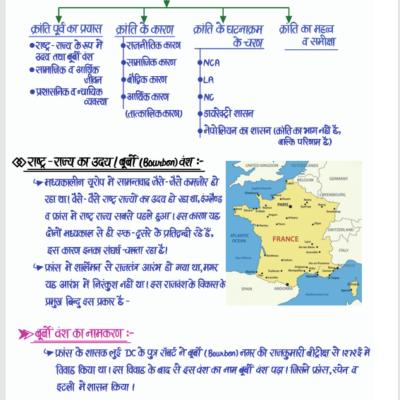 क्रांति पूर्व का प्रयास
राष्ट्र-राज्य के रूप में
उदय तथा बूर्बो वंश
सामाजिक व आर्थिक
जीवन
प्रशासनिक व न्यायिक
व्यवस्था
क्रांति के कारण
राजनीतिक कारण
सामाजिक कारण
बौद्धिक कारण
आर्थिक कारण
(तात्कालिक कारण)
क्रांति के घटनाक्रम
के-चरण
NCA
LA
NC
डायरेक्ट्री शासन
नेपोलियन का शासन (क्रांति का भाग नहीं है,
बल्कि परिणाम है)
क्रांति का महत्व
व समीक्षा
राष्ट्र-राज्य का उदय / बूर्बो (Bourbon) वंश :-
मध्यकालीन यूरोप में सामन्तवाद जैसे-जैसे कमजोर हो
रहा था। वैसे-वैसे राष्ट्र राज्यों का उदय हो रहा था, इंग्लैण्ड
व फ्रांस में राष्ट्र राज्य सबसे पहले हुआ। इस कारण यह
दोनों मध्यकाल से ही एक-दूसरे के प्रतिद्वन्दी रहे हैं,
इस कारण इनका संघर्ष चलता रहा है।
फ्रांस में शार्लमेन से राजतंत्र आरंभ हो गया था, मगर
यह आरंभ में निरंकुश नहीं था। इस राजवंश के विकास के
प्रमुख बिन्दु इस प्रकार है-
UNITED KINGDOM
BELGIUM
GERMANY
PARIS
ATLANTIC
OCEAN
FRANCE
SWITZERLAND
ITALY
SPAIN
ANDORRA
बूर्बो वंश का नामकरण :-
फ्रांस के शासक लुई IX के पुत्र रॉबर्ट ने बूर्बो (Bourbon) नगर की राजकुमारी बीट्रीस से 1272 ई में
विवाह किया था। इस विवाह के बाद से इस वंश का नाम बूर्बो वंश पड़ा। जिसने फ्रांस, स्पेन व
इटली में शासन किया।